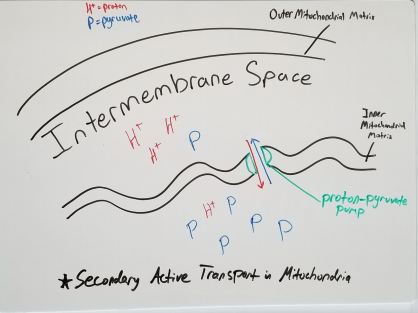 H⁺=proton
P=pyruvate
Outer Mitochondrial Matrix
Intermembrane Space
H⁺
H⁺
H⁺
P
Inner
Mitochondrial
Matrix
H⁺
P
P
P
P
P
proton-pyruvate
pump
★Secondary Active Transport in Mitochondria